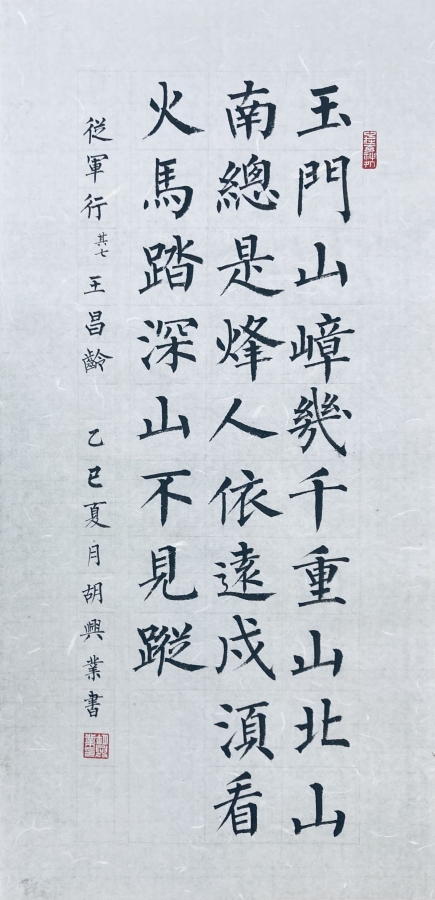 玉門山嶂幾千重山北山
南總是烽人依遠戍湏看
火馬踏深山不見蹤
從軍行 其七 王昌齡 乙巳夏月胡興業書